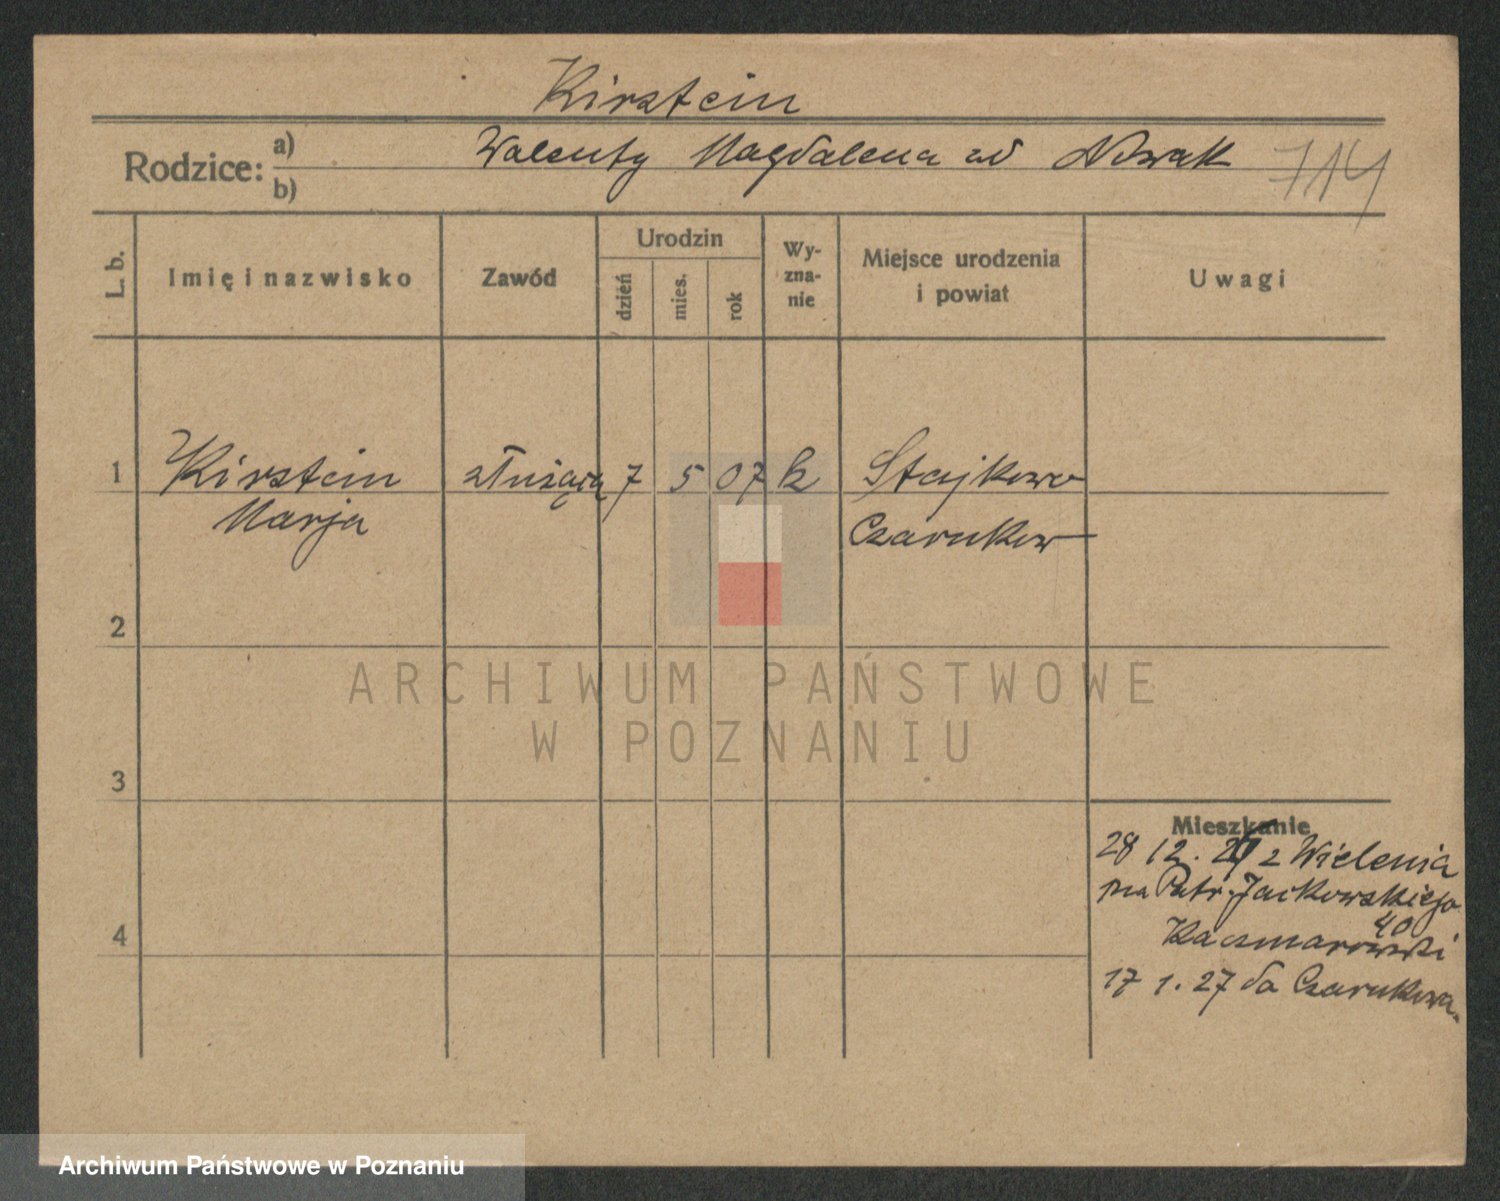 Kirstein
Rodzice: a) Walenty Magdalena zd Nowak 714
b)
L. b. Imię i nazwisko Zawód Urodzin dzień mies. rok Wy-zna-nie Miejsce urodzenia i powiat Uwagi
1 Kirstein służąca 7 5 07 k Stajkowo
Marja Czarnków
2
ARCHIWUM PAŃSTWOWE
W POZNANIU
3
Mieszkanie
28 12. z Wielenia
na Patr. Jackowskiego
40
Kaczmarowski
4
17 1. 27 do Czarnkowa.
Archiwum Państwowe w Poznaniu